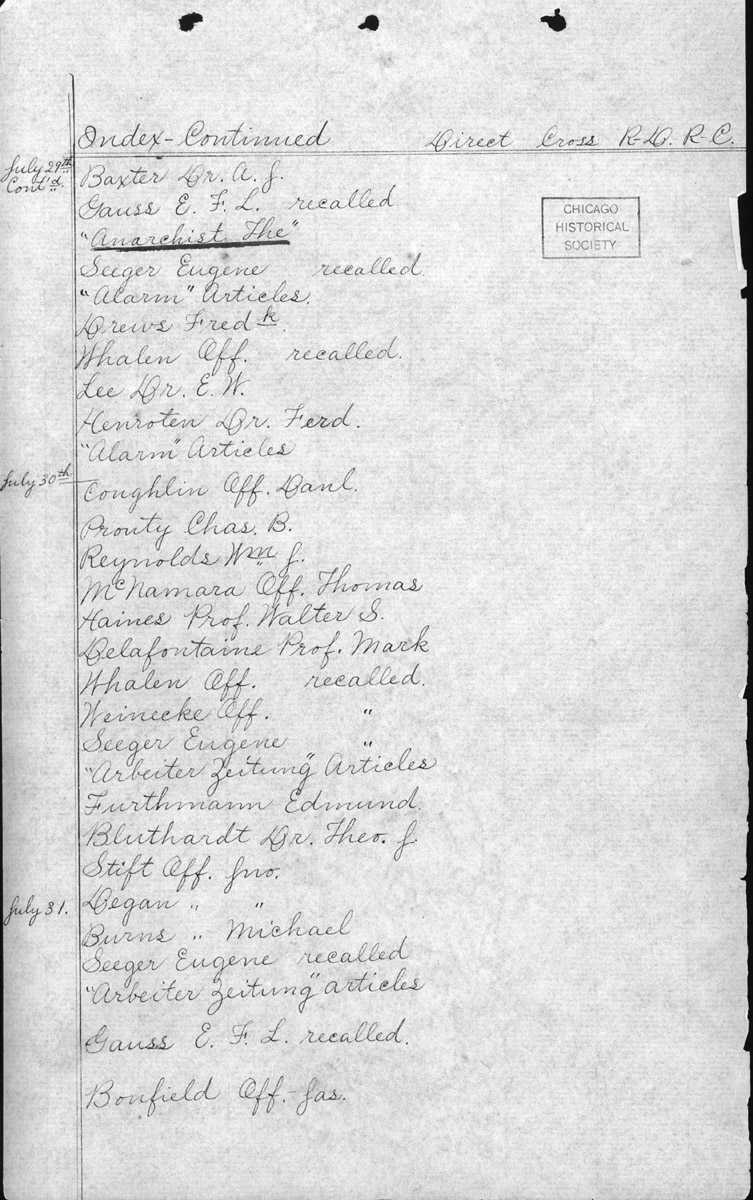 Index-Continued Direct Cross R-D. R-C.
July 29th Cont'd.
Baxter Dr. A. J.
Gauss E. F. L. recalled
"Anarchist The"
CHICAGO
HISTORICAL
SOCIETY
Seeger Eugene recalled
"Alarm" Articles.
Drews Fredk.
Whalen Off. recalled.
Lee Dr. E. W.
Henroten Dr. Ferd.
"Alarm" Articles
July 30th
Coughlin Off. Danl.
Prouty Chas. B.
Reynolds Wm J.
McNamara Off. Thomas
Haines Prof. Walter S.
Delafontaine Prof. Mark
Whalen Off. recalled.
Weinecke Off. "
Seeger Eugene "
"Arbeiter Zeitung" Articles
Furthmann Edmund.
Bluthardt Dr. Theo. J.
Stift Off. Jno.
July 31. Degan " "
Burns " Michael
Seeger Eugene recalled
"Arbeiter Zeitung" articles
Gauss E. F. L. recalled.
Bonfield Off. Jas.